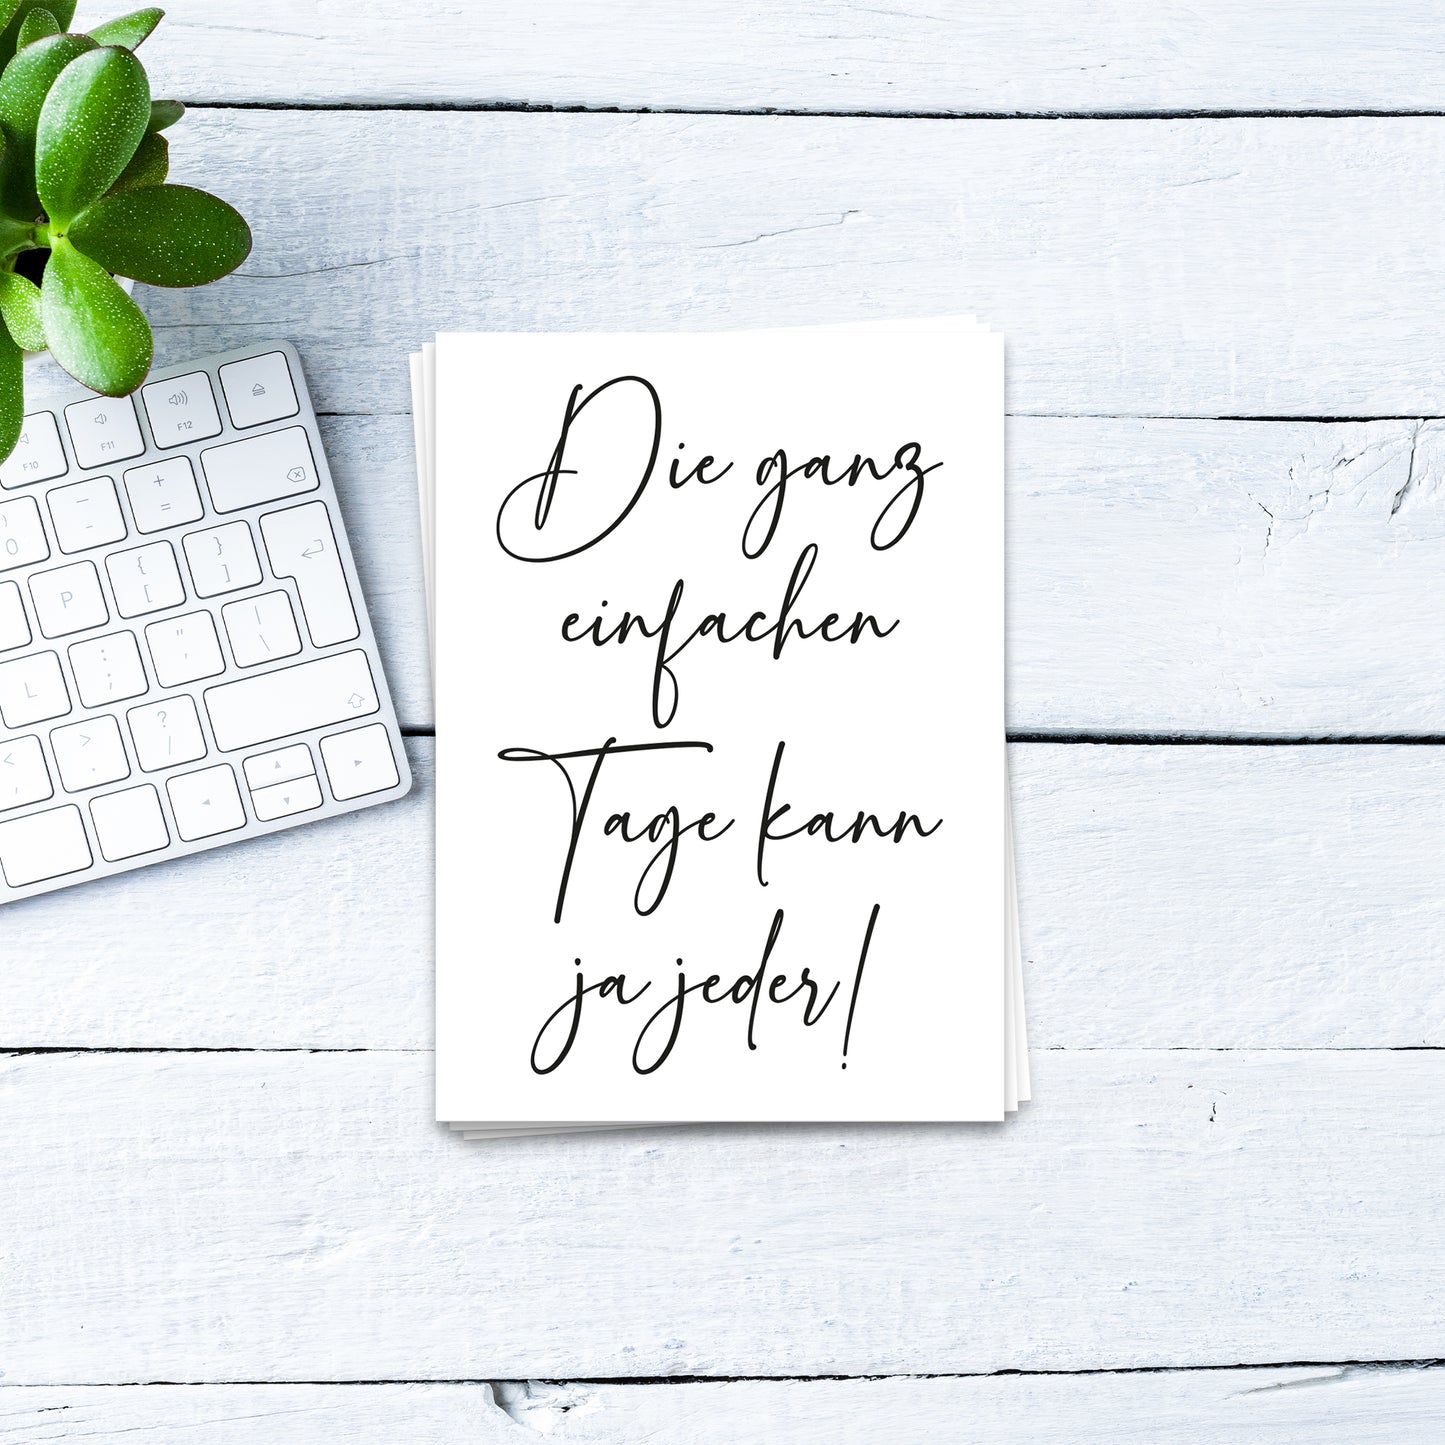 Die ganz
einfachen
Tage kann
ja jeder!
F10
F11
F12
_
-
+
=
)
0
P
{
[
}
]
L
:
;
"
'
|
\
<
,
>
.
?
/